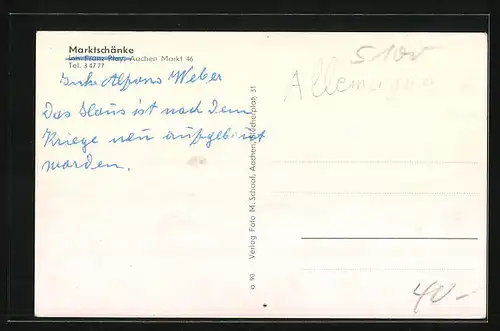 Marktschänke
Inh. Franz Plar, Aachen Markt 46
Tel. 34777
Inh. Alfons Weber
Das Haus ist nach dem
Kriege neu aufgebaut
worden.
Verlag Foto M. Schaaf, Aachen, Büchelplatz 31
a 90
Allemagne
40-